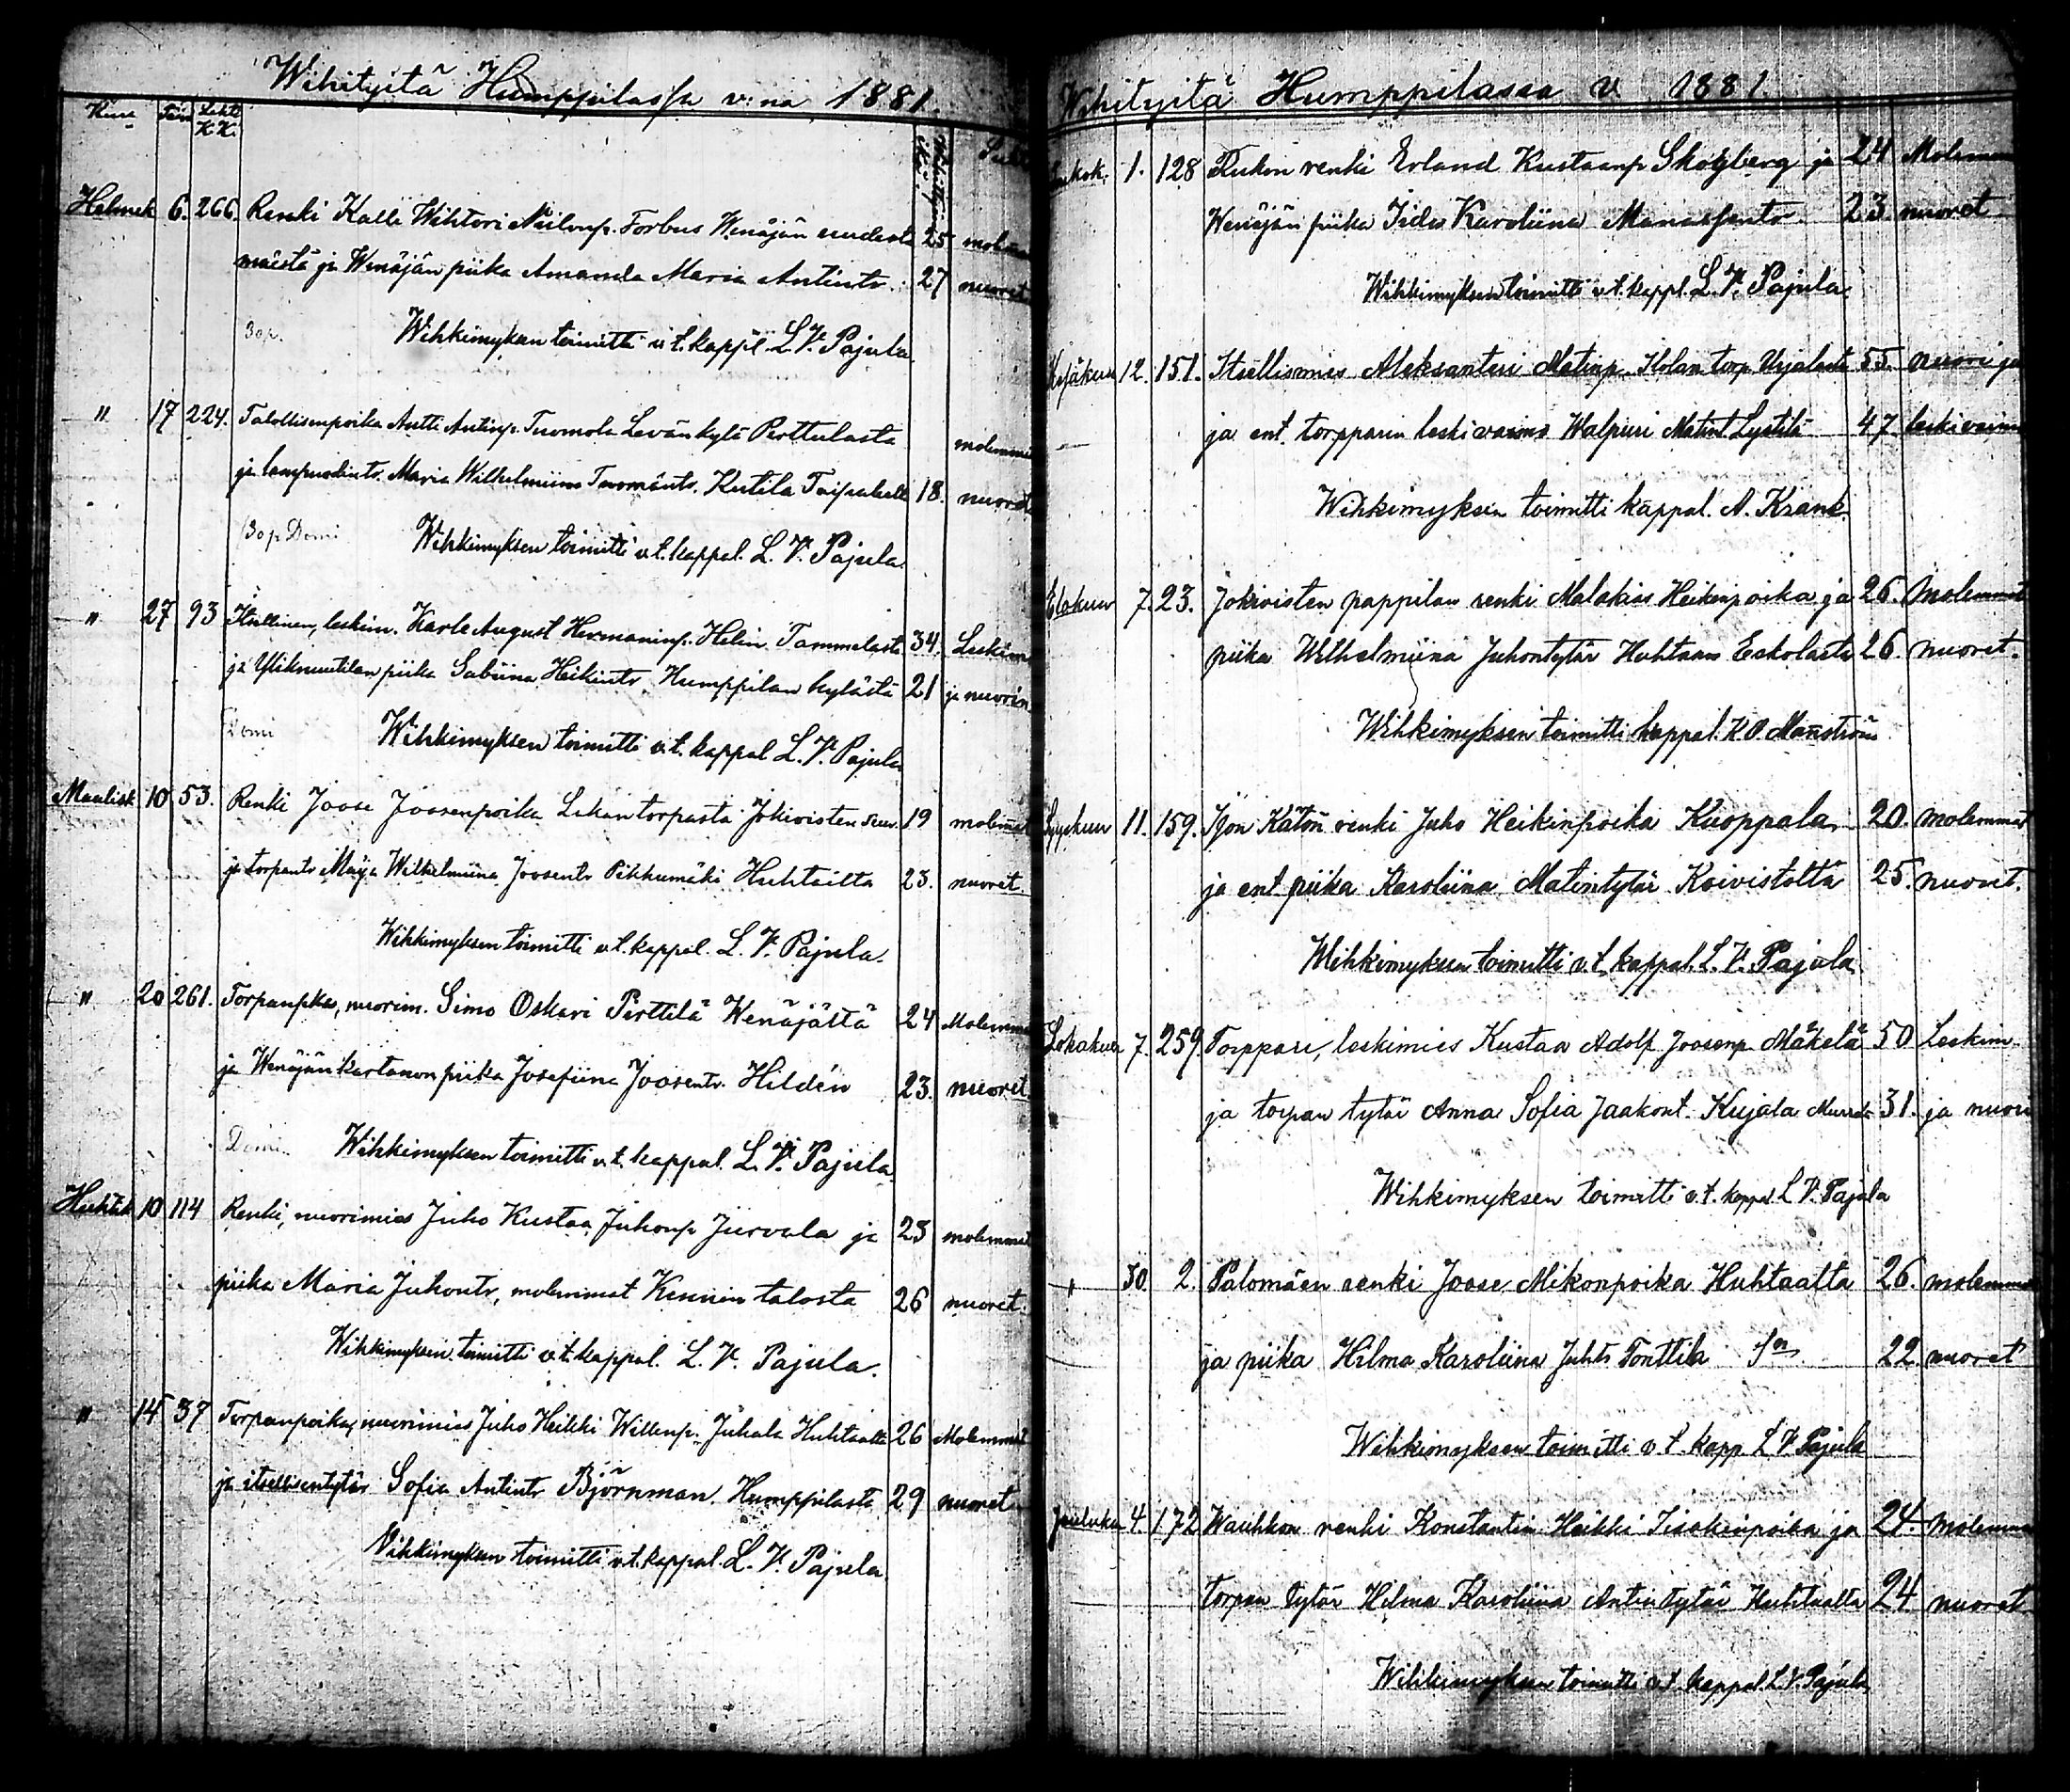 Wihityitä Humppilassa v:na 1881
Kuu Päiv Lehti K.K.
Helmik. 6. 266. Renki Kalle Wihtori Niilonp. Forbus Wenäjän uudesta 25 molemmat
maista ja Wenäjän piika Amanda Maria Antintr. 27 nuoret
Wihkimyksen toimitti v.t. kappl. L. V. Pajula
" 17 224. Talollisenpoika Antti Antinp. Tuomola Levänkylä Perttulasta molemmat
ja lampuodintr. Maria Wilhelmiina Tuomäntr. Kutila Taipaleelta 18. nuoret
Domi Wihkimyksen toimitti v.t. kappal. L. V. Pajula.
" 27 93 Itsellinen, leskim. Karle August Hermaninp. Helin Tammelasta 34. Leskim
ja Yliknuutilan piika Sabiina Heikintr. Humppilan kylästä 21 ja nuorin
Domi Wihkimyksen toimitti v.t. kappal L. V. Pajula
Maalisk 10 53. Renki Joose Joosenpoika Lakan torpasta Jokioisten seur. 19 molemmat
ja torpantr Maija Wilhelmiina Joosentr Pikkumäki Huhtailta 23. nuoret.
Wihkimyksen toimitti v.t. kappal. L. V. Pajula.
" 20 261. Torpanpka, nuorim. Simo Oskari Perttilä Wenäjältä 24 Molemmat
ja Wenäjänkartanon piika Josefiina Joosentr. Hildén 23. nuoret
Domi. Wihkimyksen toimitti v.t. kappal. L. V. Pajula
Huhtik 10 114 Renki, nuorimies Juho Kustaa Juhonp Jiirvala ja 23 molemmat
piika Maria Juhontr, molemmat Kennin talosta 26 nuoret.
Wihkimyksen toimitti v.t. kappal. L. V. Pajula.
" 14 37 Torpanpoika, nuorimies Juho Heikki Willenp. Juhala Huhtaalta 26 Molemmat
ja itsellisentytär Sofia Antintr Björnman. Humppilasta 29 nuoret
Vihkimyksen toimitti v.t. kappal. L. V. Pajula.
Wihityitä Humppilassa v. 1881.
1. 128 Rukon renki Erland Kustaanp Skogberg ja 24 Molemmat
Wenäjän piika Iida Karoliina Manassentr. 23 nuoret
Wihkimyksen toimitti v.t. kappl. L. V. Pajula
Kesäkuu 12. 151. Itsellismies Aleksanteri Matinp. Kolan torp. Urjalasta 55. nuori ja
ja ent. torpparin leskivaimo Walpuri Matint Lystilä 47. leskivaimo
Wihkimyksen toimitti kappal. A. Krank.
Elokuu 7. 23. Jokioisten pappilan renki Malakias Heikinpoika ja 26. Molemmat
piika Wilhelmiina Juhontytär Huhtaan Eskolasta 26. nuoret.
Wihkimyksen toimitti kappal. K. O. Manström
Syyskuu 11. 159. Ison Kätön renki Juho Heikinpoika Kuoppala 20. molemmat
ja ent piika Karoliina Matintytär Koivistolta 25. nuoret.
Wihkimyksen toimitti v.t. kappal. L. V. Pajula
Lokakuu 7. 259. Torppari, leskimies Kustaa Adolf Joosenp. Mäkelä 50 Leskim.
ja torpan tytär Anna Sofia Jaakont. Kujala 31. ja nuori
Wihkimyksen toimitti v.t. kappal L. V. Pajula
" 30 2. Palomäen renki Joose Mikonpoika Huhtaalta 26. molemmat
ja piika Hilma Karoliina Juhts Tonttila Sn 22. nuoret
Wihkimyksen toimitti v.t. kapp. L. V. Pajula
Jouluku 4. 172 Wauhkon renki Konstantin Heikki Iisakinpoika ja 24. molemmat
torpan tytär Hilma Karoliina Antin tytär Huhtaalta 24 nuoret
Wihkimyksen toimitti v.t. kappal L. V. Pajula